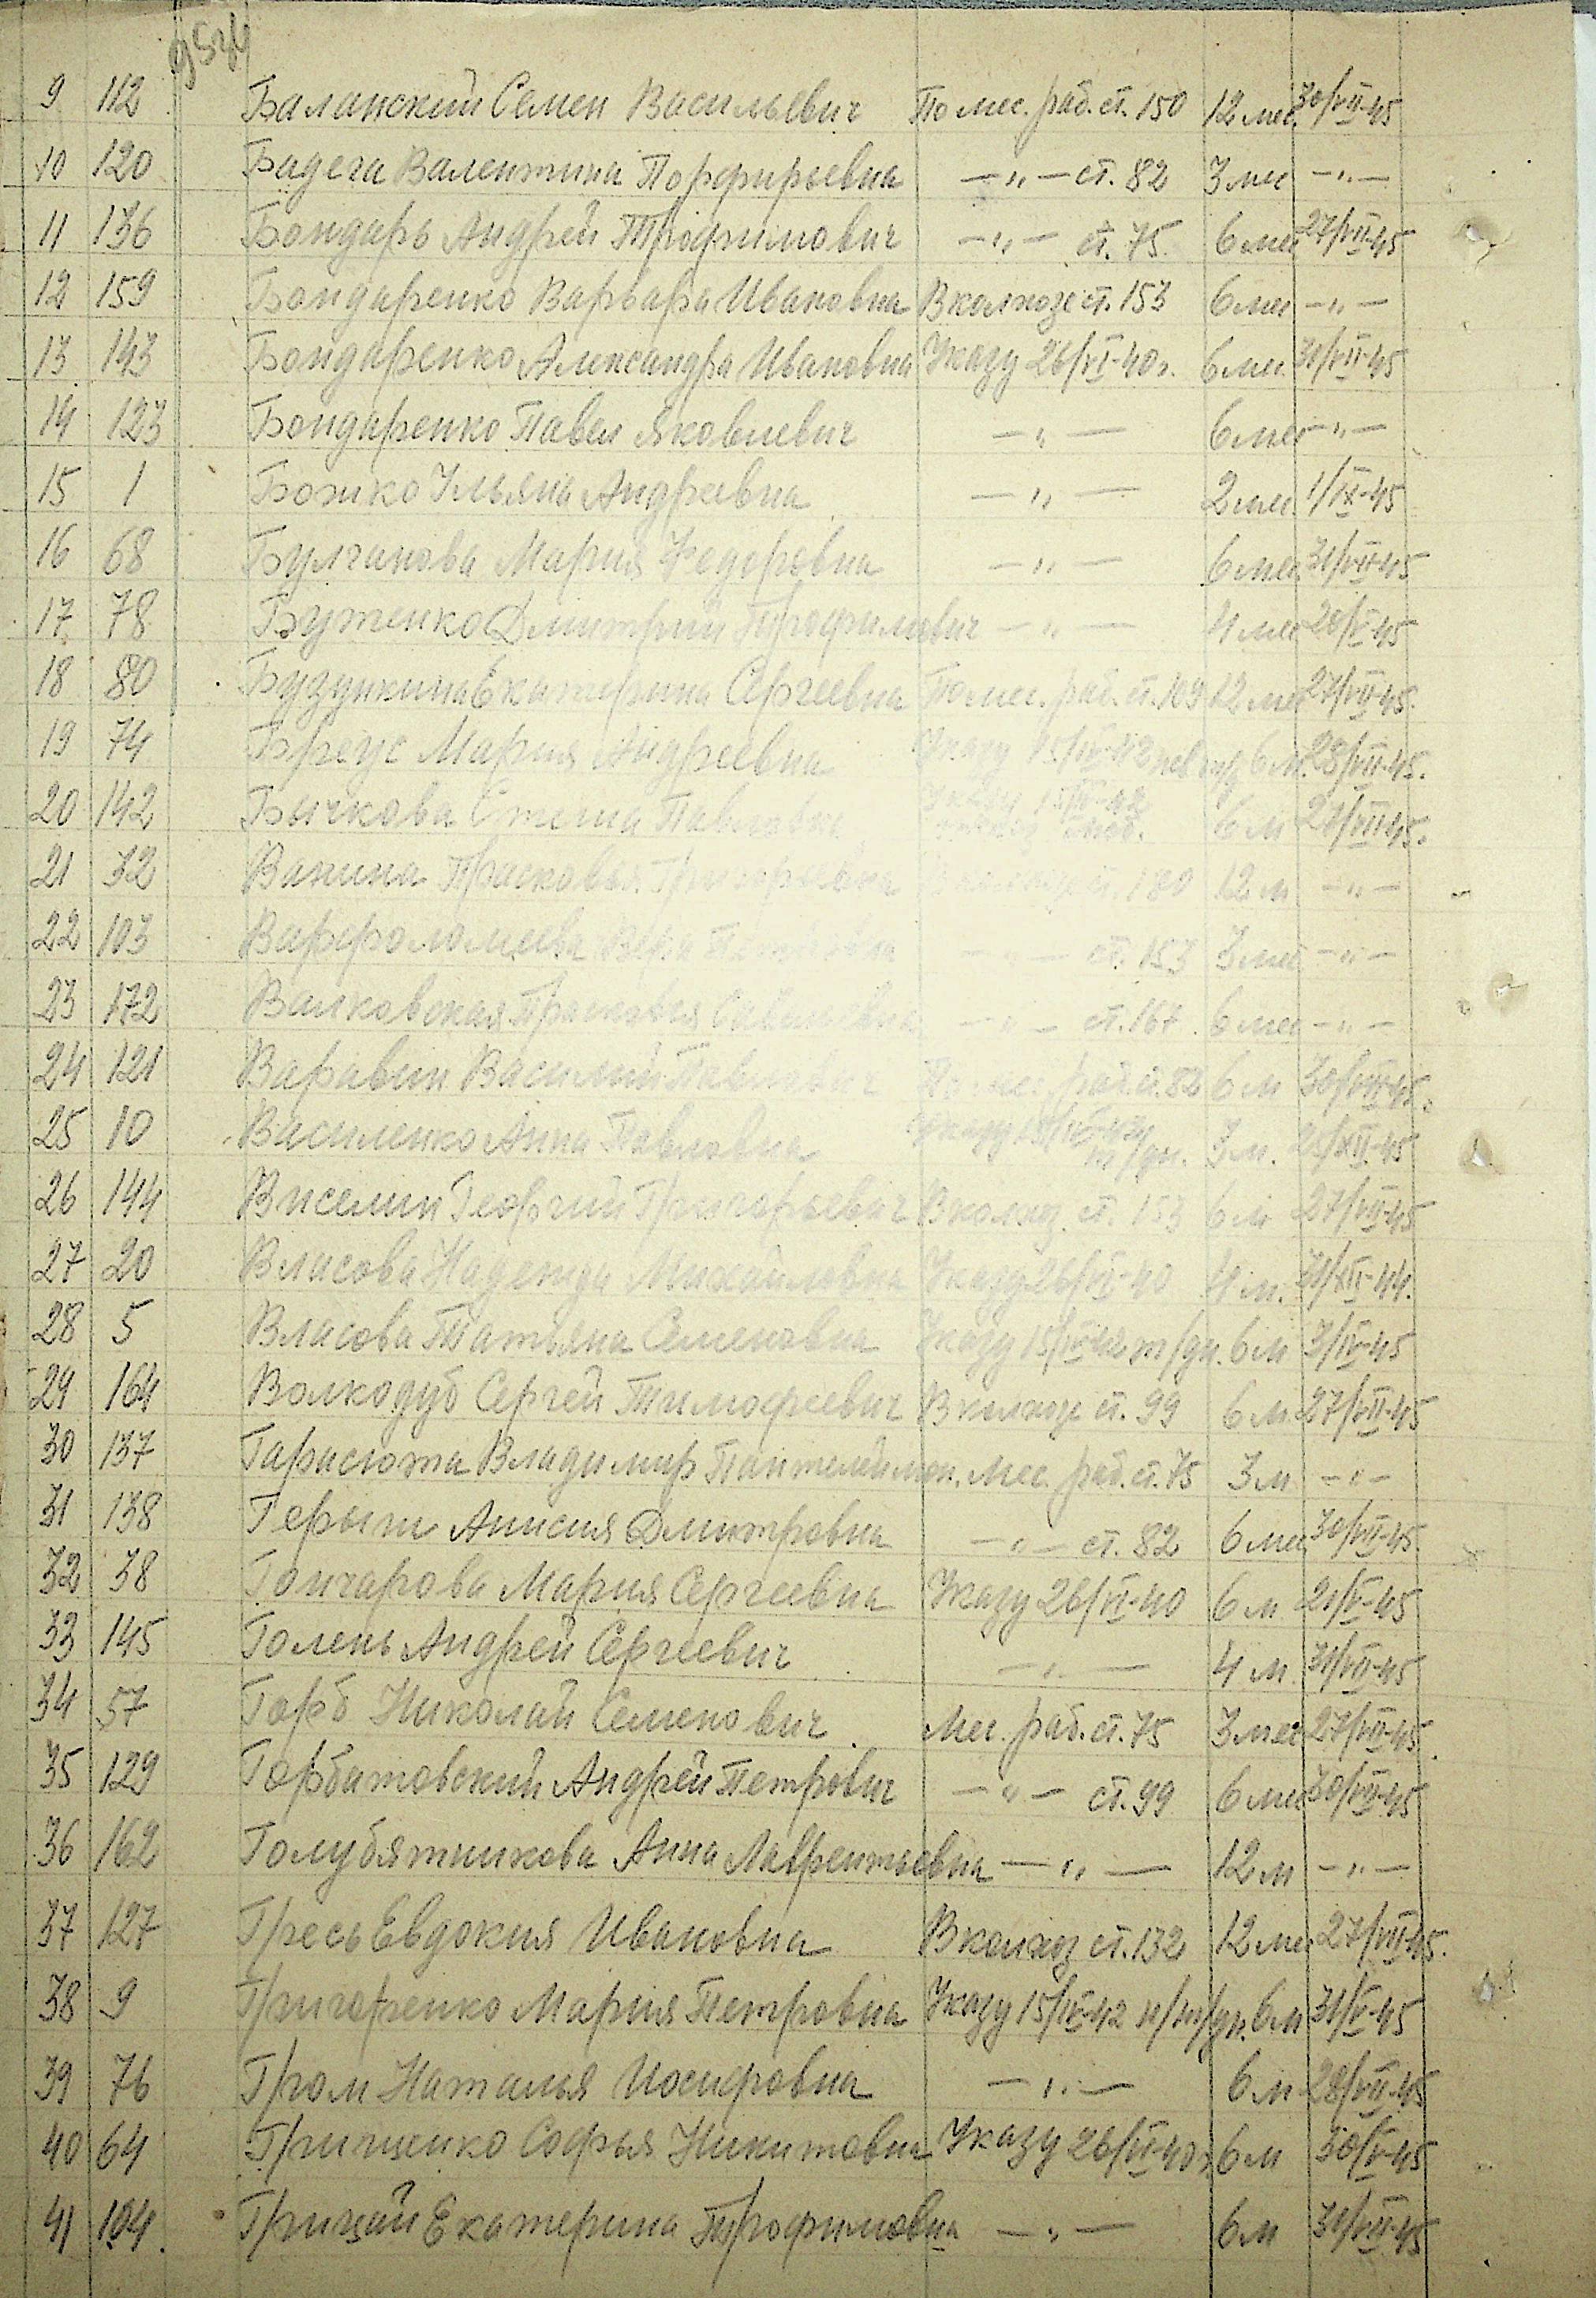 9 112 Баланский Семен Васильевич По мес. раб. ст. 150 12 мес. 30/VII-45
10 120 Бадега Валентина Порфирьевна —"— ст. 82 3 мес —"—
11 136 Бондарь Андрей Трофимович —"— ст. 75. 6 мес 27/VII-45
12 159 Бондаренко Варвара Ивановна В колхозе ст. 153 6 мес —"—
13 143 Бондаренко Александра Ивановна Указу 26/VI-40г. 6 мес. 31/VII-45
14 123 Бондаренко Павел Яковлевич —"— 6 мес —"—
15 1 Божко Ульяна Андреевна —"— 2 мес. 1/IX-45
16 68 Булчакова Мария Федоровна —"— 6 мес 31/VII-45
17 78 Бутенко Дмитрий Трофимович —"— 4 мес 20/V-45
18 80 Бузункина Екатерина Сергеевна По мес. раб. ст. 109 12 мес 27/VII-45.
19 74 Бреус Мария Андреевна Указу 15/IV-42 6 м. 28/VII-45.
20 142 Бычкова Павловна Указу 15/IV-42 моб. 6 м 27/VII-45.
21 32 Ванина Прасковья Григорьевна 180 12 м —"—
22 103 Варфоломеева Вера —"— ст. 153 3 мес —"—
23 172 Валковская Прасковья —"— ст. 167. 6 мес —"—
24 121 Варавин Василий Павлович По мес. раб. ст. 82 6 м 30/VII-45.
25 10 Василенко Анна Павловна Указу 15/IV-42 т/дн. 3 м. 25/XII-45
26 144 Виселий Георгий Григорьевич В колхоз. ст. 153 6 м 27/VII-45
27 20 Власова Надежда Михайловна Указу 26/VI-40 4 м. 31/XII-44.
28 5 Власова Татьяна Семеновна Указу 15/IV-42 т/дн. 6 м 3/IV-45
29 164 Волкодуб Сергей Тимофеевич В колхозе ст. 99 6 м 27/VII-45
30 137 Гарасюта Владимир Пантелеймон. Мес. раб. ст. 75 3 м —"—
31 138 Герыш Анисия Дмитровна —"— ст. 82 6 мес 30/VII-45.
32 38 Гончарова Мария Сергеевна Указу 26/VI-40 6 м 21/V-45
33 145 Голень Андрей Сергеевич —"— 4 м. 31/VII-45
34 57 Горб Николай Семенович Мес. раб. ст. 75 3 мес 27/VII-45.
35 129 Горбатовский Андрей Петрович —"— ст. 99 6 мес 30/VII-45
36 162 Голубятникова Анна Лаврентьевна —"— 12 м —"—
37 127 Гресь Евдокия Ивановна В колхоз ст. 132 12 мес 27/VII-45.
38 9 Григоренко Мария Петровна Указу 15/IV-42 н/т/дн. 6 м 31/V-45
39 76 Гром Наталья Иосифовна —"— 6 м 28/VII-45
40 64 Грищенко Софья Никитовна Указу 26/VI-40г 6 м 30/V-45
41 104. Грицай Екатерина Трофимовна —"— 6 м 31/VII-45